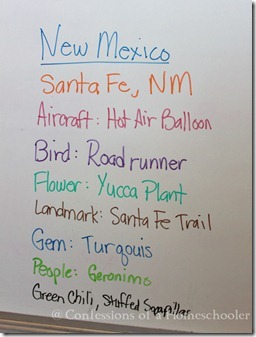 New Mexico
Santa Fe, NM
Aircraft: Hot Air Balloon
Bird: Roadrunner
Flower: Yucca Plant
Landmark: Santa Fe Trail
Gem: Turqouis
People: Geronimo
Green Chili, Stuffed Sopapillas
@ Confessions of a Homeschooler